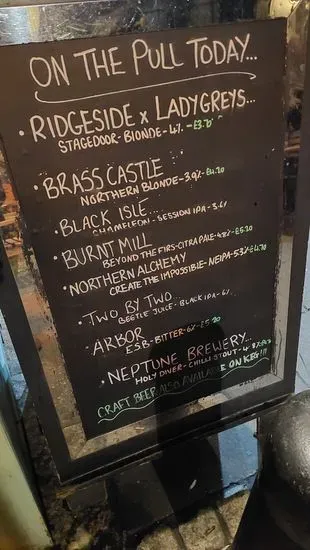 ON THE PULL TODAY...
• RIDGESIDE x LADYGREYS...
STAGEDOOR - BLONDE - 4% - £3.70
• BRASS CASTLE
NORTHERN BLONDE - 3.9% - £4.20
• BLACK ISLE...
CHAMELEON - SESSION IPA - 3.6%
• BURNT MILL
BEYOND THE FIRS - CITRA PALE - 4.2% - £5.20
• NORTHERN ALCHEMY
CREATE THE IMPOSSIBLE - NEIPA - 5.3% £4.70
• TWO BY TWO...
BEETLE JUICE - BLACK IPA - 6%
• ARBOR
E.S.B - BITTER - 6% - £5.20
• NEPTUNE BREWERY...
HOLY DIVER - CHILLI STOUT -
CRAFT BEER ALSO AVAILABLE ON KEG!!!